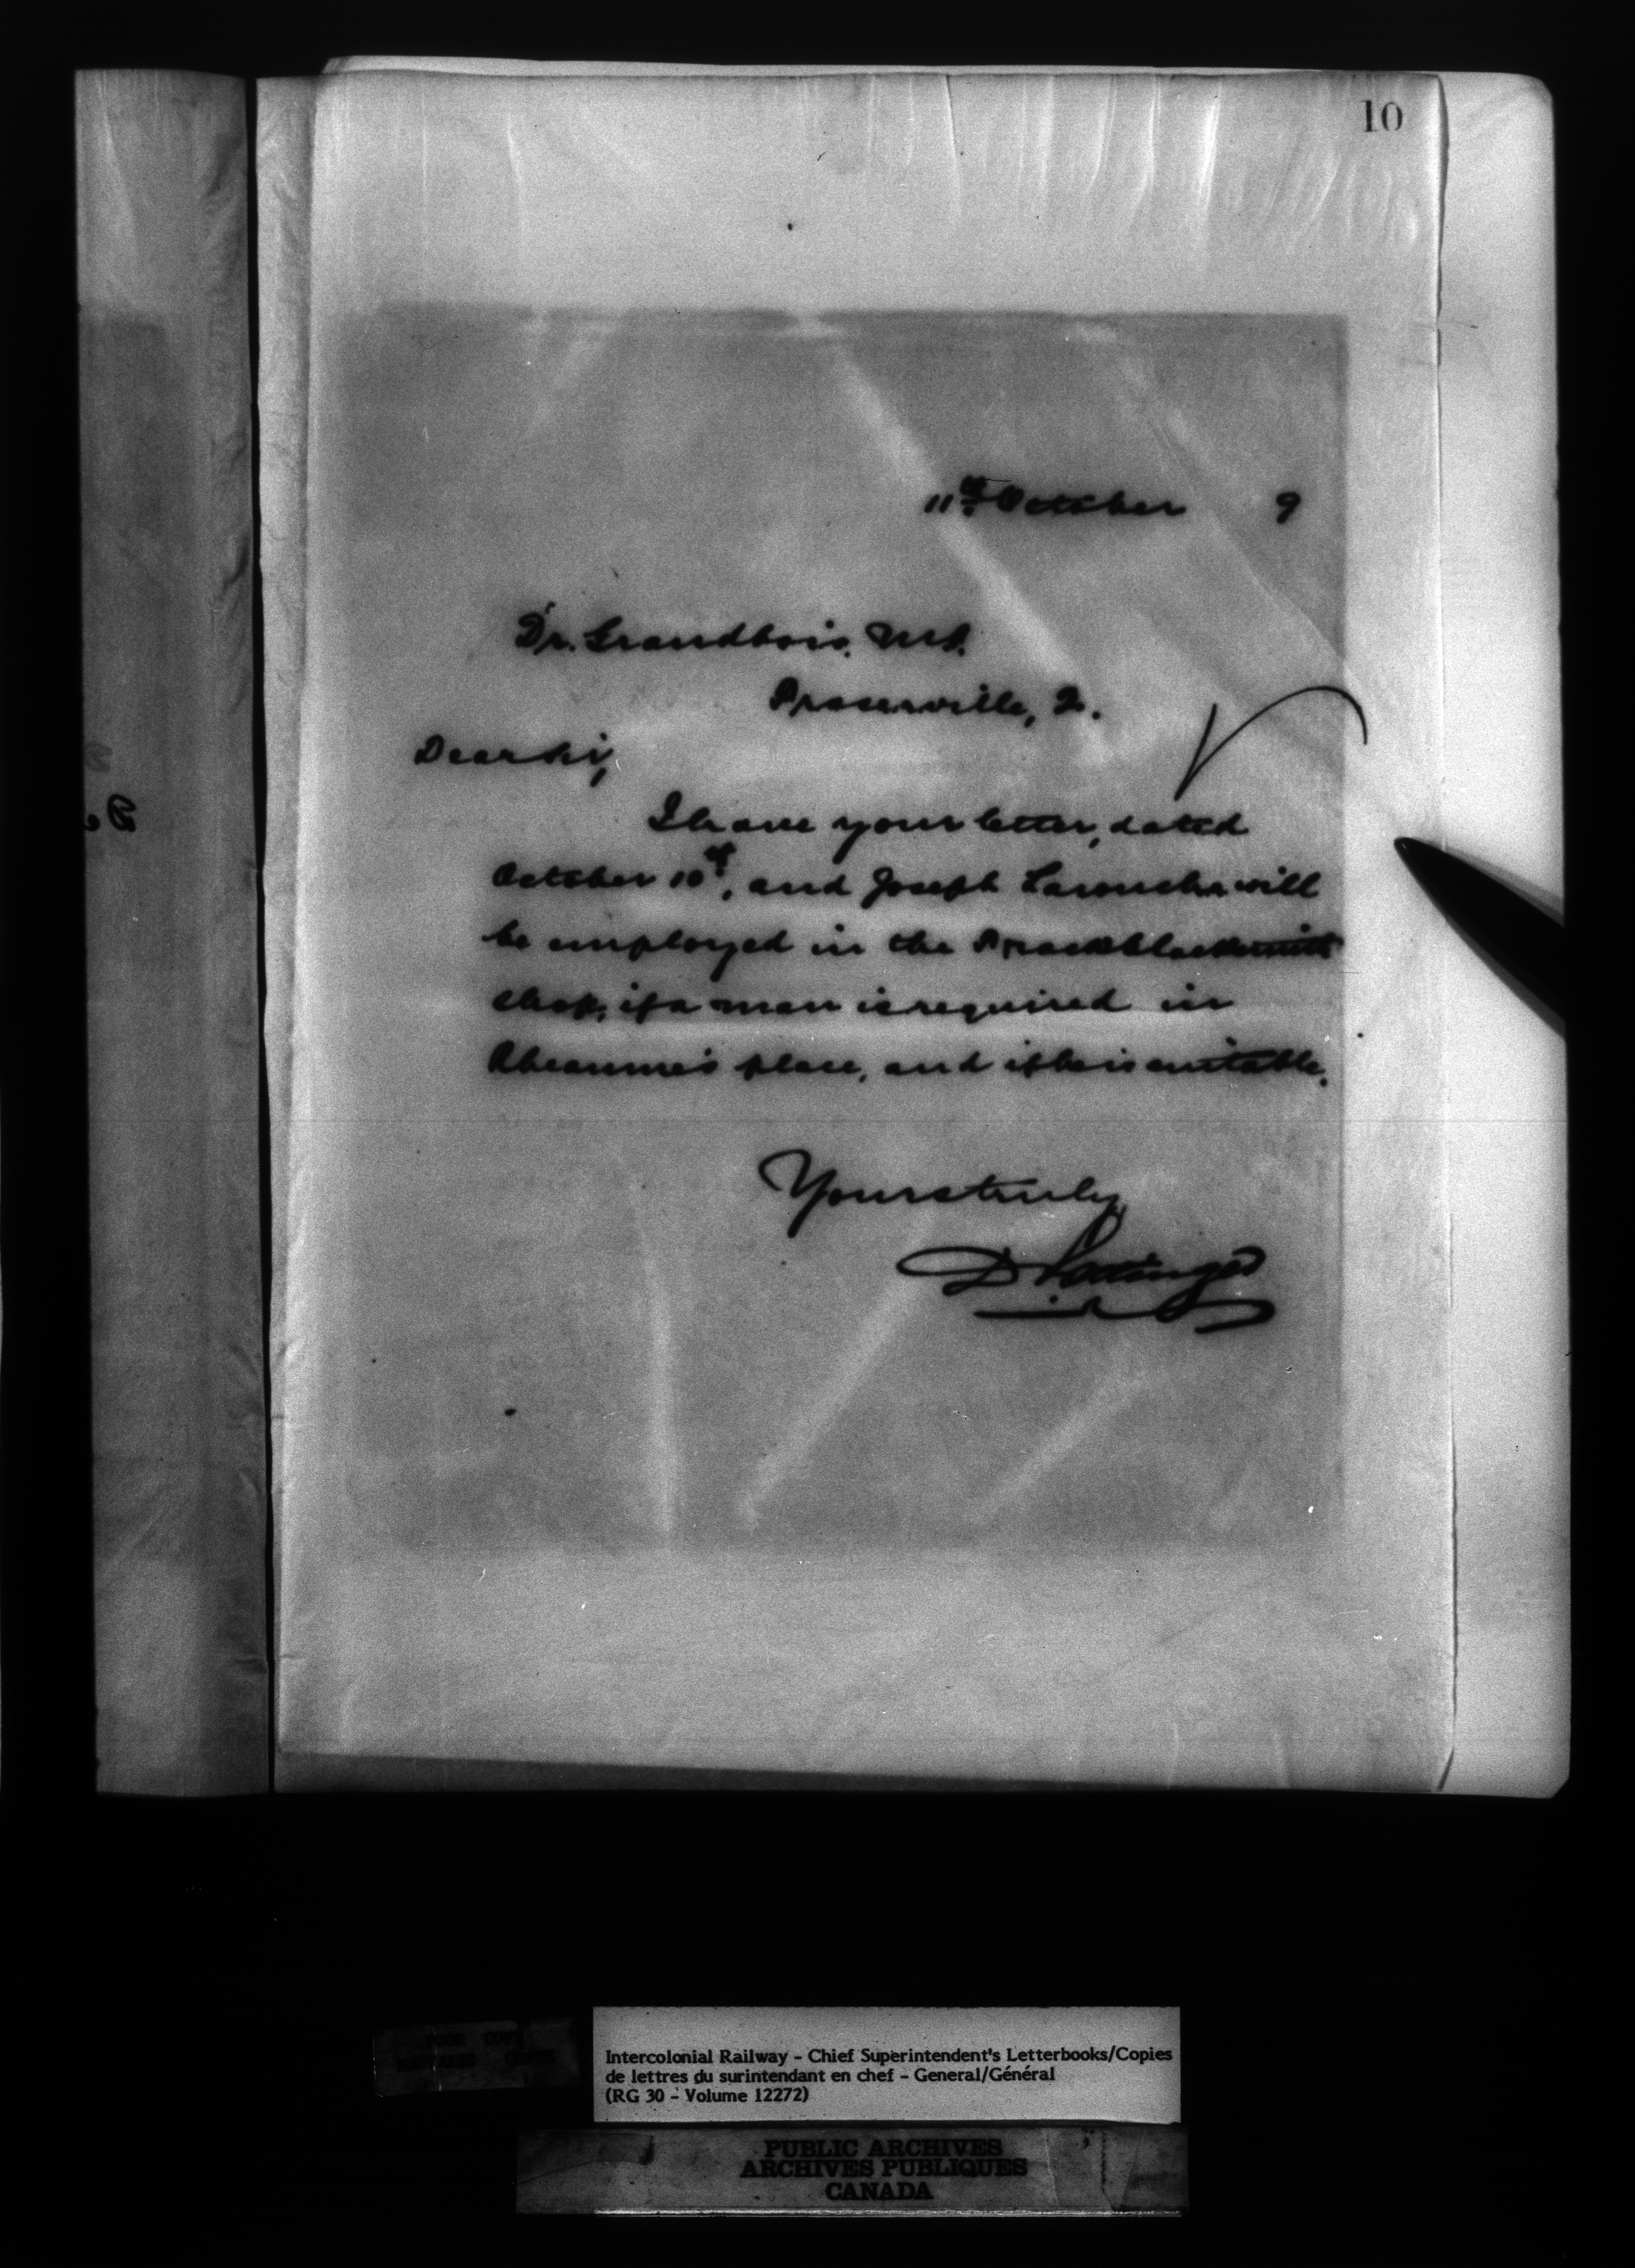 10
11th October 9
Dr. Grandbois, M.P.
Fraserville, Q.
Dear Sir,
I have your letter, dated
October 10th, and Joseph Larouche will
be employed in the Track blacksmith
shop, if a man is required in
Rheaume's place, and if he is suitable.
Yours truly,
D Pottinger
Intercolonial Railway - Chief Superintendent's Letterbooks/Copies
de lettres du surintendant en chef - General/Général
(RG 30 - Volume 12272)
PUBLIC ARCHIVES
ARCHIVES PUBLIQUES
CANADA